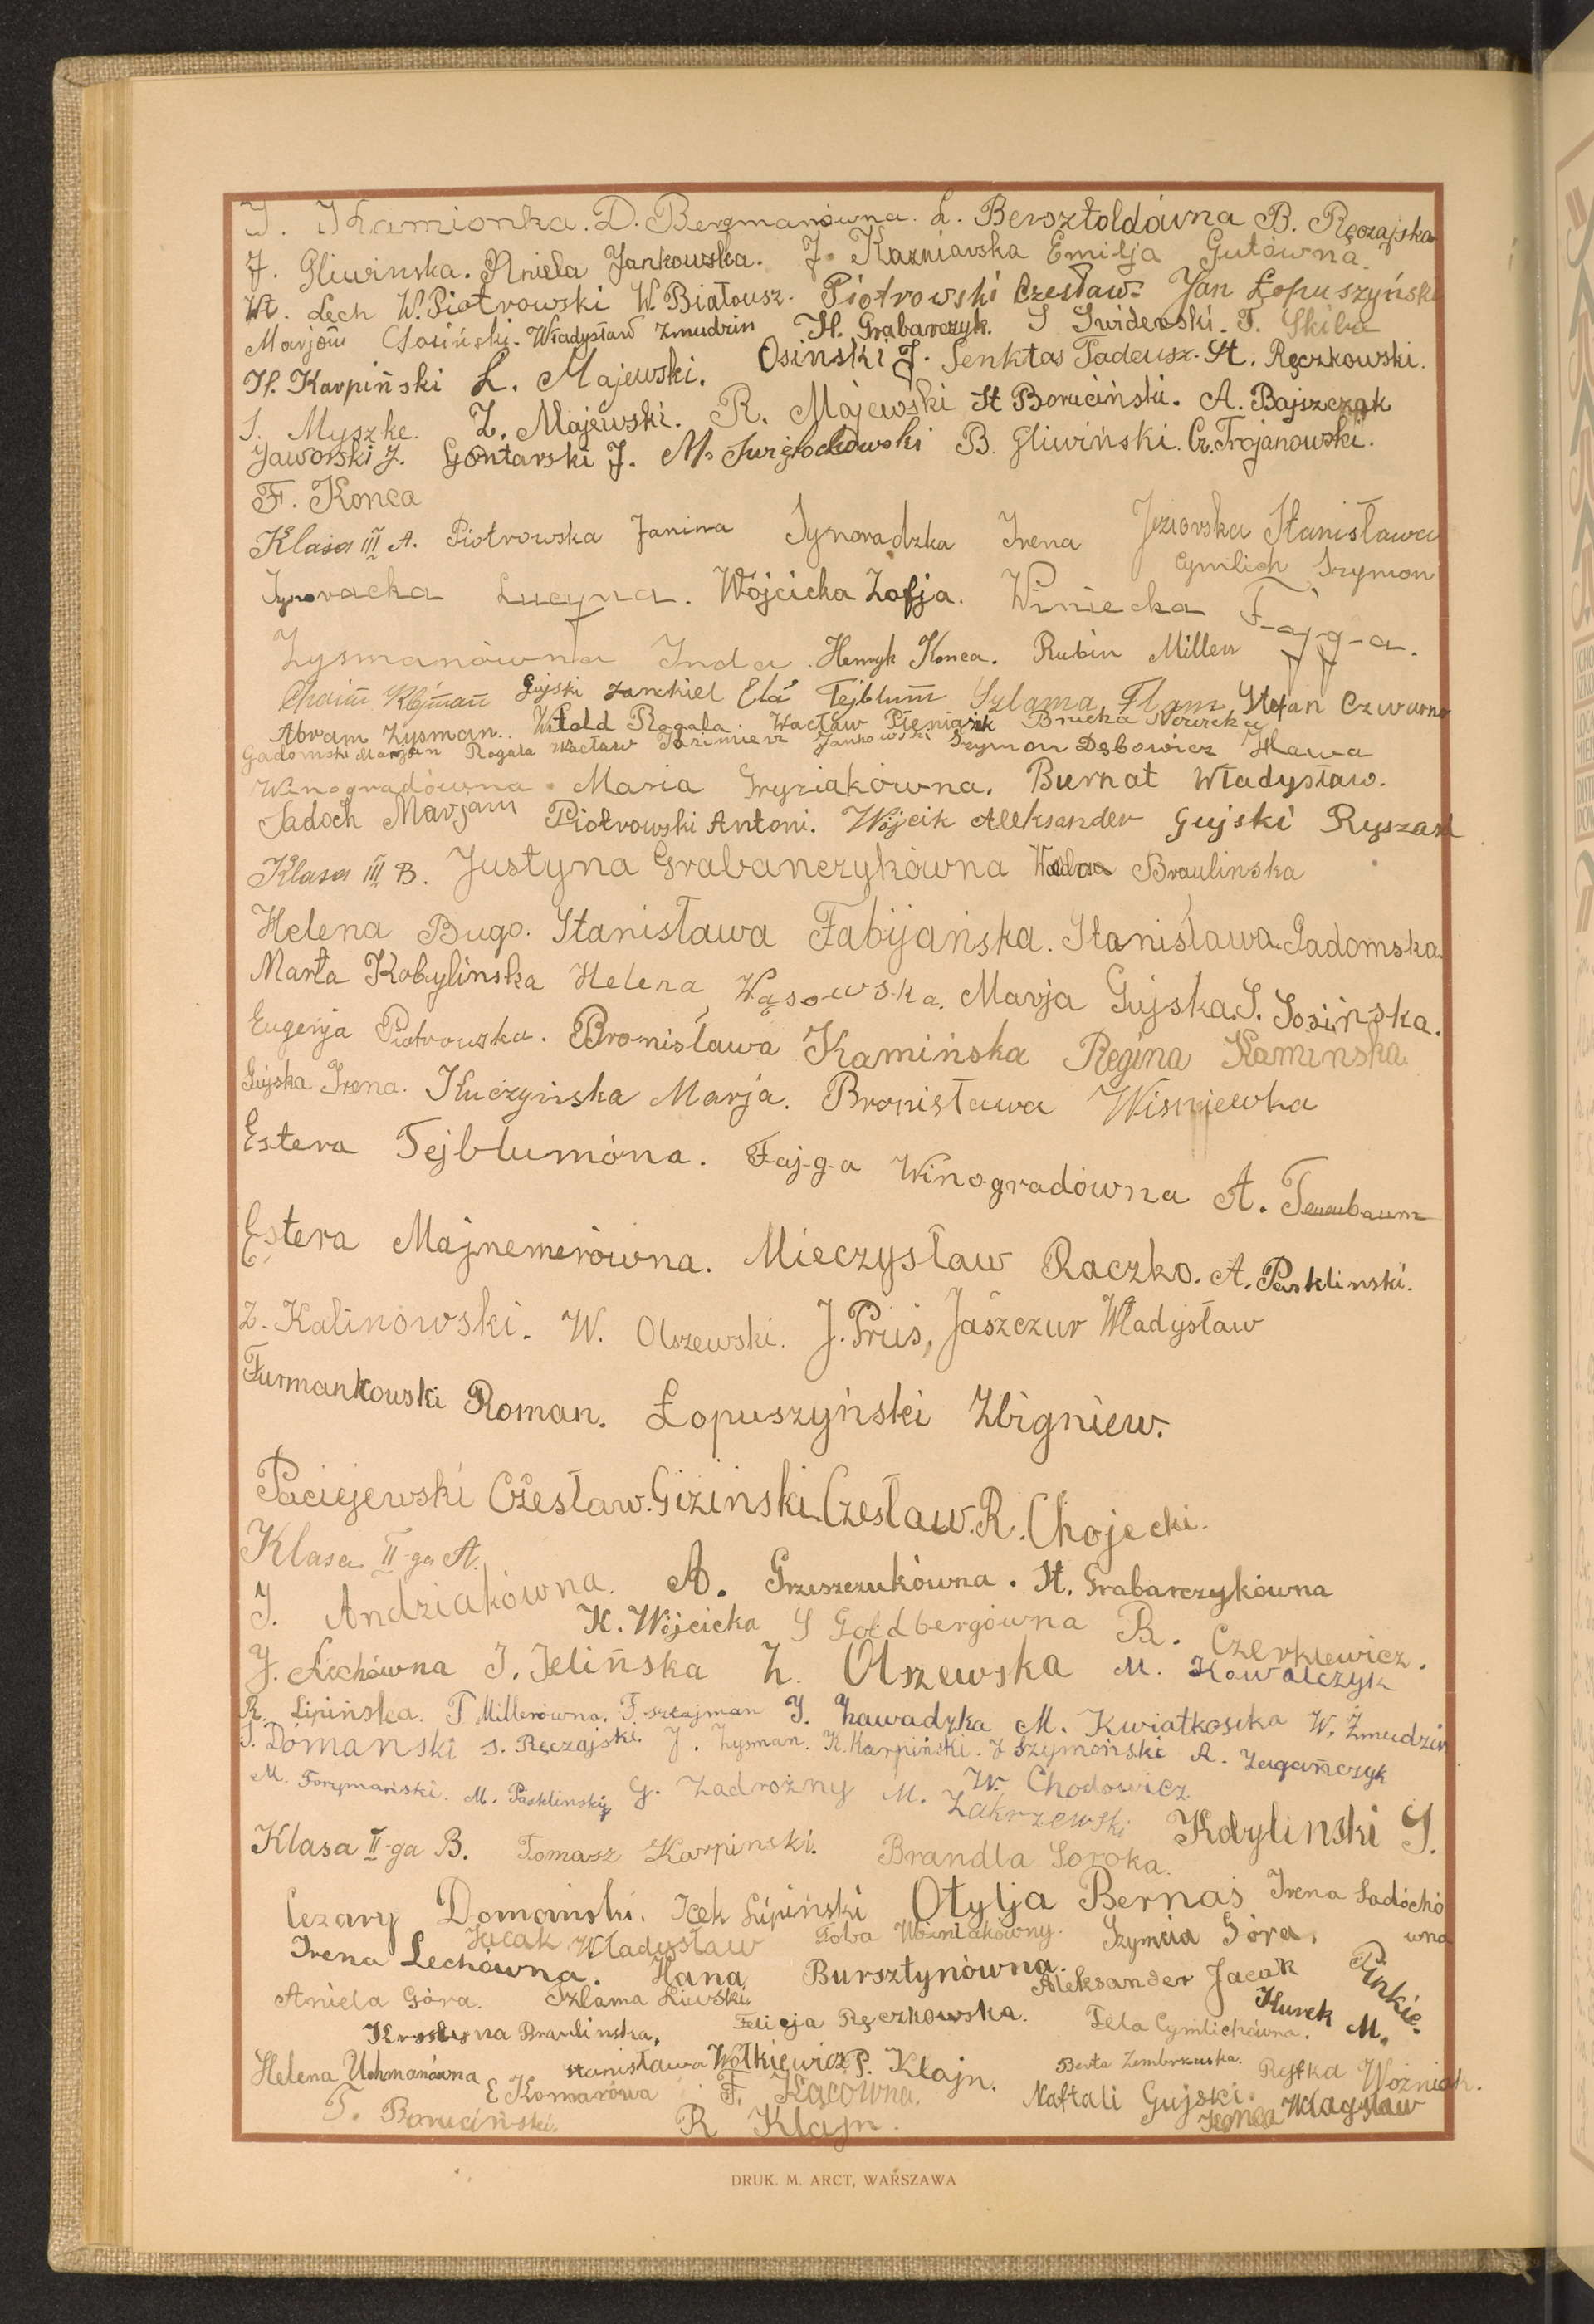 J. Kamionka. D. Bergmanówna. L. Bersztoldówna B. Ręczajska
J. Gliwinska. Aniela Jankowska. J. Kazniarska Emilja Gutówna.
Wł. Lech W. Piotrowski W. Białousz. Piotrowski Czesław. Jan Łopuszyński
Marjan Osiński. Władysław Zmudzin H. Grabarczyk. S Swiderski. T. Skiba
H. Karpiński L. Majewski. Osinski J. Senktas Tadeusz. St. Ręczkowski.
S. Myszke. Z. Majewski. R. Majewski St Boruciński. A. Bajszczak
Jaworski J. Gontarski J. M. B. Gliwiński. Cz. Trojanowski.
F. Konca
Klasa III A. Piotrowska Janina Synoradzka Irena Jeziorska Stanisława
Cymlich Szymon
Lucyna. Wójcicka Zofja. Winiecka Fajga.
Zysmanówna Inda. Henryk Konca. Rubin Miller
Chaim Klejman Gujski Janchiel Ela Tejblum Szlama Flam Stefan Czwarno
Abram Zysman. Witold Rogala. Wacław Pleniazik Brucka
Gadomski Marjan Rogala Wacław Kazimierz Jankowski Szymon Dębowicz Hawa
Winogradówna. Maria Gryziakówna. Burnat Władysław.
Sadoch Marjam Piotrowski Antoni. Wójcik Aleksander Gujski Ryszard
Klasa III B. Justyna Grabarczykówna Braulinska
Helena Bugo. Stanisława Fabijańska. Stanisława Gadomska.
Marta Kobylinska Helena Wąsowska. Marja Gujska S. Sosińska.
Eugenja Piotrowska. Bronisława Kamińska Regina Kaminska
Gujska Irena. Kuczyńska Marja. Bronisława Wisniewka
Estera Tejblumóna. Fajga Winogradówna A. Tenenbaum
Estera Majnemerówna. Mieczysław Raczko. A. Pasklinski.
Z. Kalinowski. W. Olszewski. J. Prus, Jaszczur Władysław
Furmankowski Roman. Łopuszyński Zbigniew.
Paciejewski Czesław. Gizinski Czesław. R. Chojecki.
Klasa II-ga A.
J. Andziakówna. A. Grzeszczukówna. St. Grabarczykówna
K. Wójcicka S Goldbergówna R. Czerkiewicz.
J. Lechówna J. Jelińska Z. Olszewska M. Kowalczyk
R. Lipińska. P Millerówna. F. Sztajman J. Zawadzka M. Kwiatkoska W. Żmudzin
S. Domański S. Ręczajski. J. Zysman. K. Karpiński. J Szymański A. Zagańczyk
M. Forymański. M. Pasklinski G. Zadrożny M. Zakrzewski W. Chodowicz.
Klasa II-ga B. Tomasz Karpinski. Brandla Soroka. Kobylinski J.
Cezary Domański. Icek Lipiński Otylja Bernaś Irena Sadochó
wna
Jacak Władysław Toba Wozniakówny. Szymcia Góra.
Irena Lechówna. Hana Bursztynówna. Aleksander Jacak Pinkie.
Aniela Góra. Szlama Liwski. Kurek M.
Krystyna Braulinska, Felicja Ręczkowska. Fela Cymlichówna.
Helena Uchmanówna Stanisława Wołkiewicz P. Klajn. Berta Zembrzuska. Ryfka Woźniak.
E Komarówa F. Kacówna. Naftali Gujski.
T. Boruciński. R Klajn. Konca Wladysław
DRUK. M. ARCT, WARSZAWA